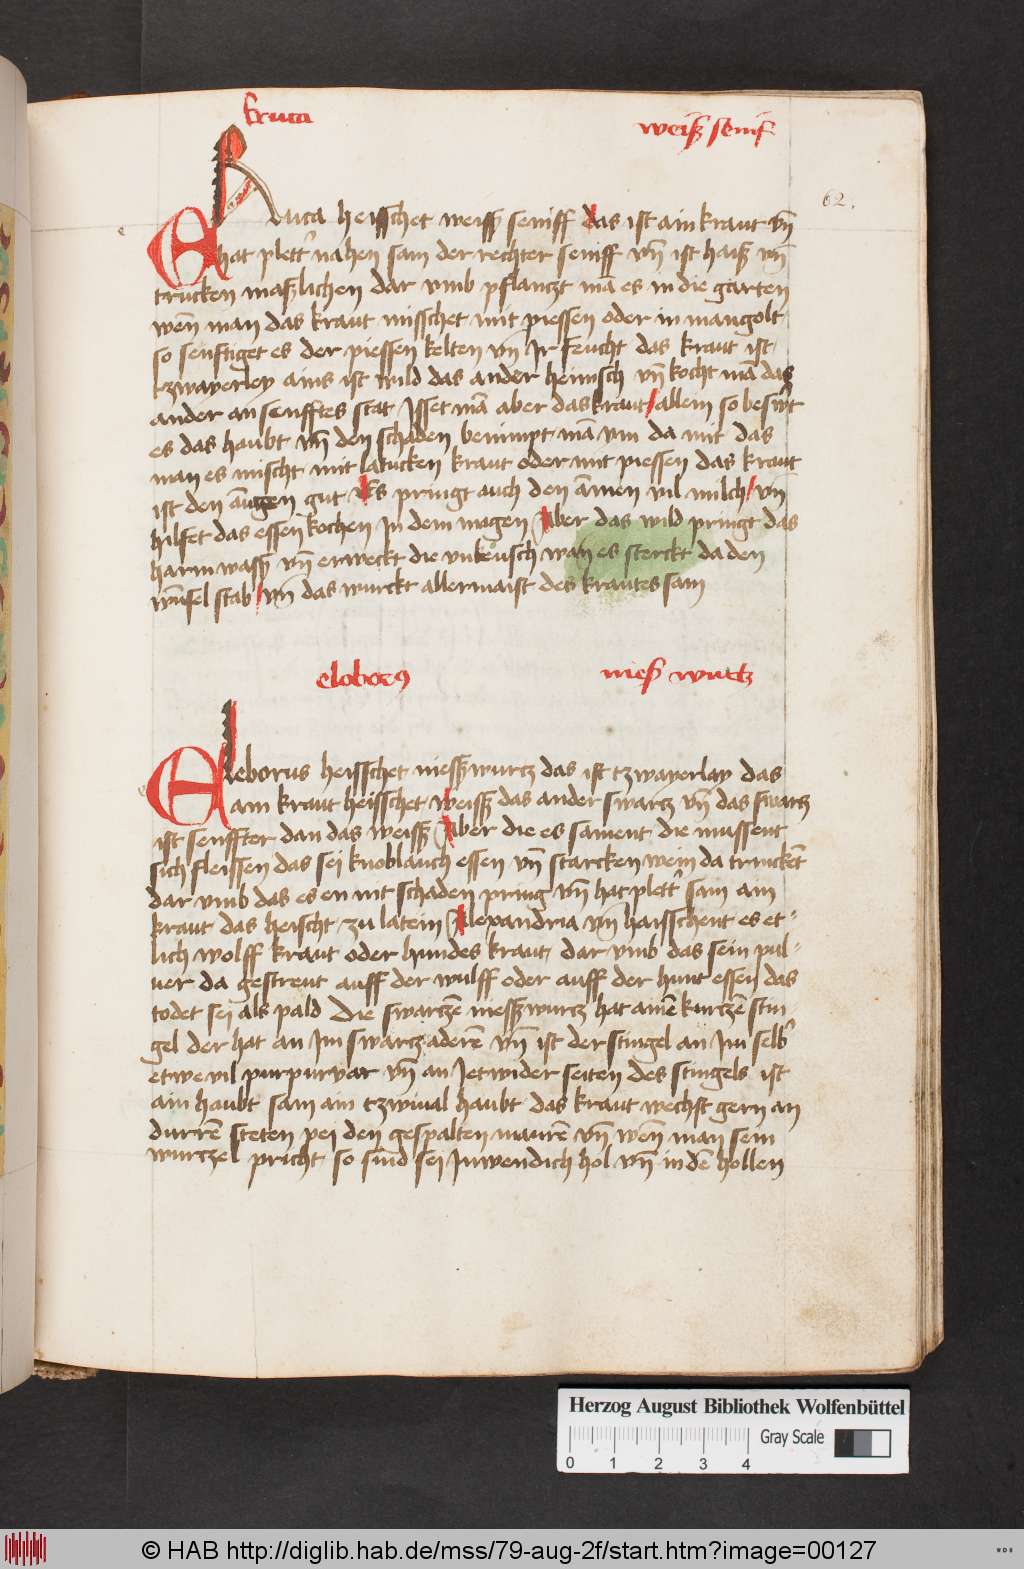 Eruca
weiß senif
62.
ERuca heisschet weiss seniff das ist ain kraut vn̄
hat plett' nahen sam der rechter seniff vn̄ ist haiß vn̄
trucken maßlichen dar vmb pflanczt mā es in die garten
wen̄ man das kraut misschet mit piessen oder in mangolt
so senftiget es der piessen kelten vn̄ Ir feucht das kraut ist
tzwayerley ains ist wild das ander heimsch vn̄ kocht mā das
ander an senfftes stat Isset mā aber das kraut allein so beswt
es das haubt vn̄ den schaden benimpt mā vm da mit das
man es mischt mit latucken kraut oder mit piessen das kraut
ist den augen gut Es pringt auch den āmen vil milch vn̄
hilfet das essen kochen In dem magen Aber das wild pringt das
harm wasß vn̄ erweckt die vnkeusch wan es sterckt da den
wūsel stab vn̄ das wurckt allermaist des krautes sam
eloborꝰ
nieß wurtz
Eleborus heisschet niesßwurcz das ist tzwayerlay das
ain kraut heisschet weisß das ander swarcz vn̄ das swarcz
ist senffter dan das weisß Aber die es sament die mussent
sich fleissen das sei knoblauch essen vn̄ starcken wein da trincken̄
dar vmb das es en nit schaden pring vn̄ hat plett' sam am
kraut das heischt zu latein Alexandria vn̄ haisschent es et-
lich wolff kraut oder hundes kraut dar vmb das sein pul-
uer da gestreut auff der wulff oder auff der hunt essen das
todet sei als pald Die swarczē niesßwurcz hat ainē kurczē stin
gel der hat an Im swarcz aderē vn̄ ist der stingel an Im selb'
etwe vil purpurvar vn̄ an Jetwider seiten des stingels ist
ain haubt sam ain tzwival haubt das kraut wechst gern an
durrē steten pei den gespalten maurē vn̄ wen̄ man sein
wurczel pricht so sind sei Inwendich hol vn̄ in dē hollen
Herzog August Bibliothek Wolfenbüttel
Gray Scale
0 1 2 3 4
© HAB http://diglib.hab.de/mss/79-aug-2f/start.htm?image=00127